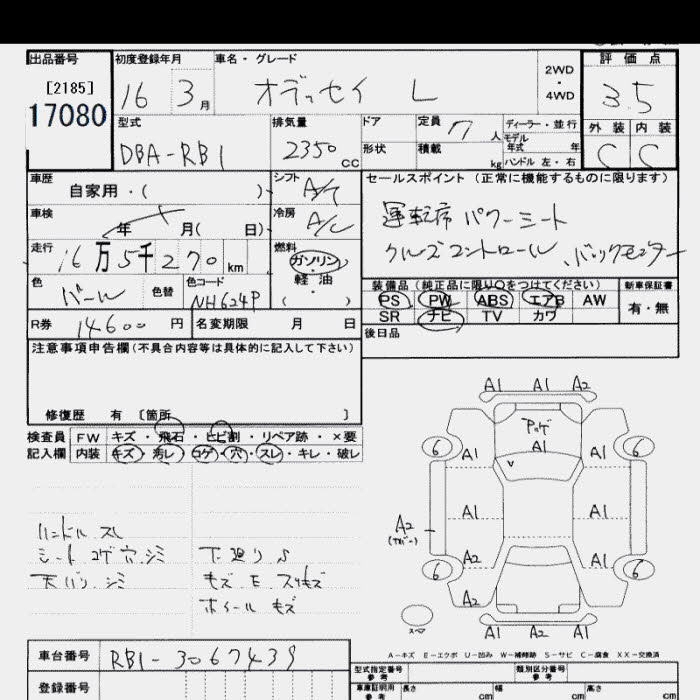 出品番号
[2185]
17080
初度登録年月
16 3月
車名・グレード
オデッセイ L
2WD
・
4WD
評価点
3.5
型式
DBA-RB1
排気量
2350cc
ドア
形状
定員 7人
積載 kg
ディーラー・並行
モデル
年式 年
ハンドル 左・右
外装 内装
C C
車歴
自家用・( )
シフト
A/T
セールスポイント (正常に機能するものに限ります)
運転席 パワーシート
クルーズコントロール、バックモニター
車検
年 月( 日)
冷房
A/C
走行
16万5千270km
燃料
ガソリン・
軽油
( ・ )
色
パール
色替
色コード
NH624P
装備品 (純正品に限り○をつけてください)
PS PW ABS エアB AW
SR ナビ TV カワ
新車保証書
有・無
R券 14600円
名変期限 月 日
後日品
注意事項申告欄(不具合内容等は具体的に記入して下さい)
修復歴 有 [箇所 ]
検査員
記入欄
FW キズ・飛石・ヒビ割・リペア跡・×要
内装 キズ・汚レ・コゲ・穴・スレ・キレ・破レ
ハンドル スレ
シート コゲ穴、シミ
天バリ シミ
下廻り S
キズ、E、スリキズ
ホイール キズ
A1 A1 A2
A1
6 A1 A1 6
A2
A1 A1
6 A2 A1 6
A2
スペア
A1 A1 A2
A-キズ E-エクボ U-凹み W-補修跡 S-サビ C-腐食 XX-交換済
車台番号 RB1-3067439
登録番号
型式指定番号
参考
類別区分番号
参考
車庫証明用
参考
長さ cm
幅 cm
高さ cm